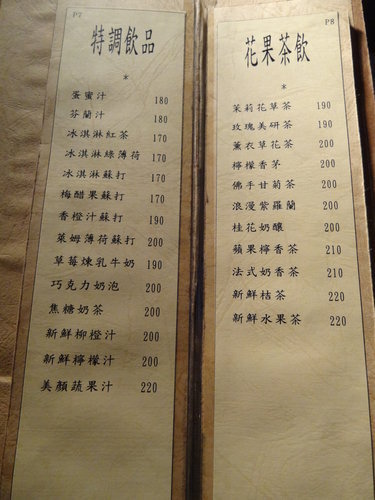 P7
特調飲品
*
蛋蜜汁 180
芬蘭汁 180
冰淇淋紅茶 170
冰淇淋綠薄荷 170
冰淇淋蘇打 170
梅醋果蘇打 170
香橙汁蘇打 190
萊姆薄荷蘇打 200
草莓煉乳牛奶 190
巧克力奶泡 200
焦糖奶茶 200
新鮮柳橙汁 200
新鮮檸檬汁 200
美顏蔬果汁 220
P8
花果茶飲
*
茉莉花草茶 190
玫瑰美研茶 190
薰衣草花茶 200
檸檬香茅 200
佛手甘菊茶 200
浪漫紫羅蘭 200
桂花奶釀 200
蘋果檸香茶 210
法式奶香茶 210
新鮮桔茶 220
新鮮水果茶 220